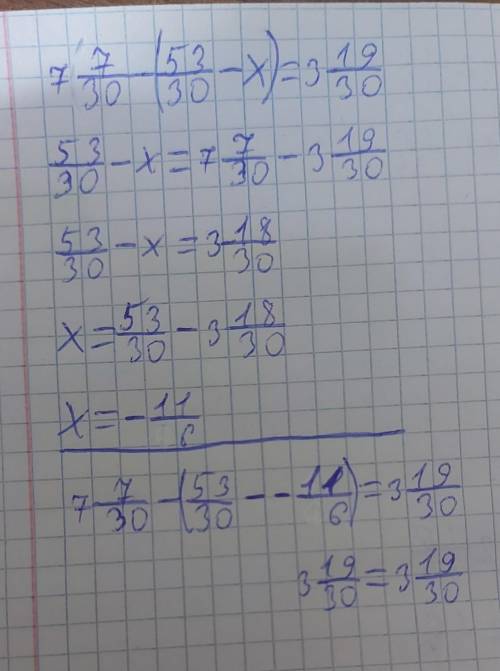 7 7/30 - (53/30 - x) = 3 19/30
53/30 - x = 7 7/30 - 3 19/30
53/30 - x = 3 18/30
x = 53/30 - 3 18/30
x = - 11/6
7 7/30 - (53/30 - - 11/6) = 3 19/30
3 19/30 = 3 19/30